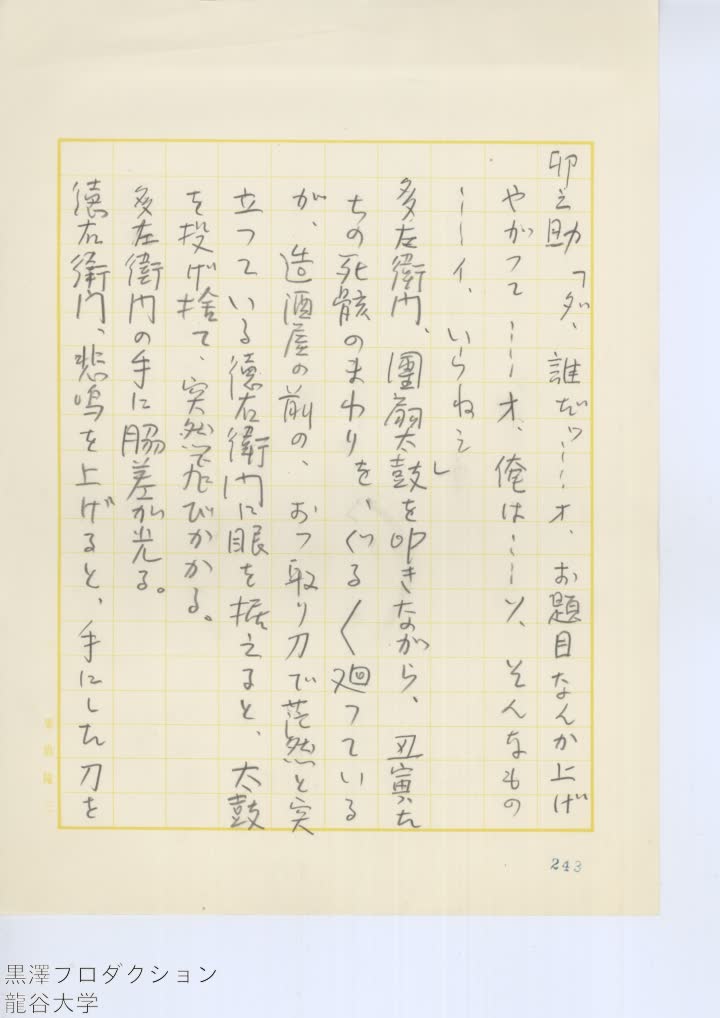 卯之助「ダ、誰だッ……オ、お題目なんか上げ
やがって……オ、俺は……ソ、そんなもの
……イ、いらねえ」
多左衛門、團扇太鼓を叩きながら、丑寅た
ちの死骸のまわりを、ぐる〱廻っている
が、造酒屋の前の、おっ取り刀で茫然と突
立っている徳右衛門に眼を据えると、太鼓
を投げ捨て、突然飛びかかる。
多左衛門の手に脇差が光る。
徳右衛門、悲鳴を上げると、手にした刀を
243
黒澤プロダクション
龍谷大学